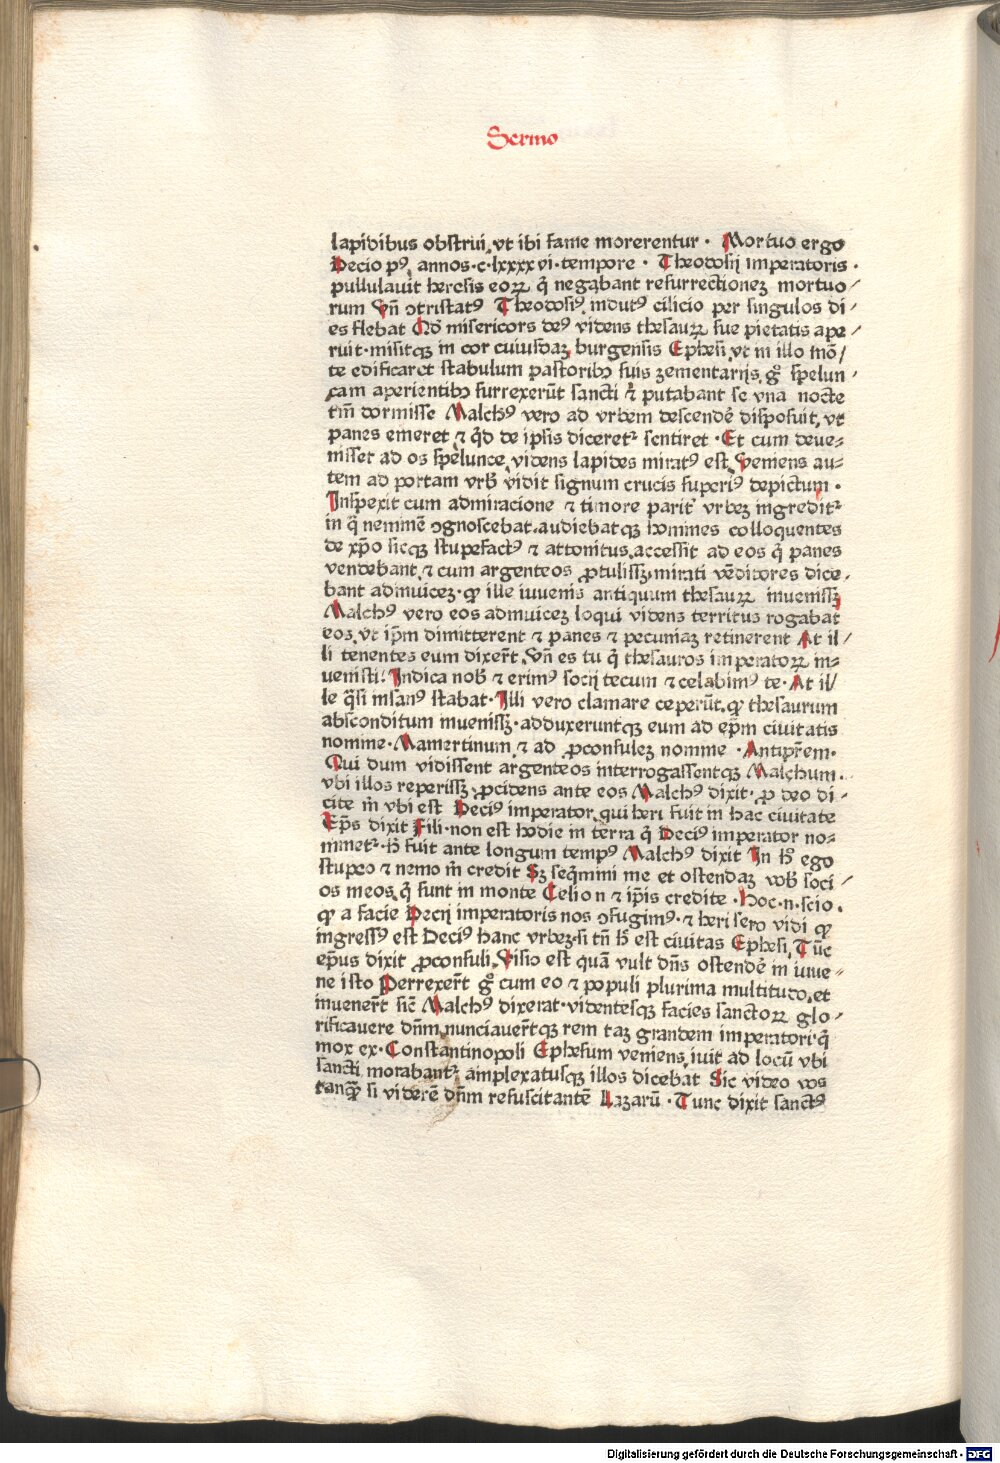 Sermo
lapidibus obstrui, vt ibi fame morerentur · Mortuo ergo
Decio pꝰ, annos · c · lxxxx vi · tempore · Theodosij imperatoris ·
pullulauit heresis eoꝝ q̄ negabant resurrectioneꝫ mortuo⸗
rum Vn̄ ꝯtristatꝰ Theodosiꝰ, indutꝰ cilicio per singulos di⸗
es flebat Qd̓ misericors deꝰ videns thesauꝝ sue pietatis ape ⸗
ruit · misitqꝫ in cor cuiusdaꝫ burgensis Ephesi, vt in illo mō/
te edificaret stabulum pastoribꝫ suis zementarijs, gͦ spelun ⸗
cam aperientibꝫ surrexerūt sancti ⁊ putabant se vna nocte
tm̄ dormisse Malchꝰ vero ad vrbem descendē disposuit, vt
panes emeret ⁊ qd̓ de ipsis diceretᷣ sentiret · Et cum deue⸗
nisset ad os spelunce, videns lapides miratꝰ est, Veniens au⸗
tem ad portam vrbꝭ vidit signum crucis superiꝰ depictum ·
Inspexit cum admiracione ⁊ timore paritᷣ vrbeꝫ ingreditᷣ
in q̄ neminē ꝯgnoscebat · audiebatqꝫ homines colloquentes
de xp̄o sicqꝫ stupefactꝰ ⁊ attonitus, accessit ad eos q̄ panes
vendebant, ⁊ cum argenteos ꝓtulissꝫ, mirati vēditores dice ⸗
bant adinuiceꝫ · ꝙ ille iuuenis antiquum thesauꝝ inuenissꝫ
Malchꝰ vero eos adinuiceꝫ loqui videns territus rogabat
eos, vt ip̄m dimitterent ⁊ panes ⁊ pecuniaꝫ retinerent At il /
li tenentes eum dixerūt, Vn̄ es tu q̄ thesauros imperatoꝝ in⸗
uenisti! Indica nobꝭ ⁊ erimꝰ socij tecum ⁊ celabimꝰ te · At il/
le q̄si insanꝰ stabat · Illi vero clamare ceperūt, ꝙ thesaurum
absconditum inuenissꝫ · adduxeruntqꝫ eum ad ep̄m ciuitatis
nomine · Mamertinum ⁊ ad ꝓconsuleꝫ nomine · Antipr̄em ·
Qui dum vidissent argenteos interrogassentqꝫ Malchum ·
vbi illos reperissꝫ, ꝓcidens ante eos Malchꝰ dixit · ꝓ deo di ⸗
cite m̄ vbi est Deciꝰ imperator, qui heri fuit in hac ciuitate
Ep̄s dixit Fili · non est hodie in terra q̄ Deciꝰ imperator no⸗
minetᷣ · hꝫ fuit ante longum tempꝰ Malchꝰ dixit In hͦ ego
stupeo ⁊ nemo m̄ credit Sꝫ seq̄mini me et ostendaꝫ vobꝭ soci /
os meos, q̄ sunt in monte Celion ⁊ ip̄is credite · Hoc · n · scio ·
ꝙ a facie Decij imperatoris nos ꝯfugimꝰ · ⁊ heri sero vidi ꝙ
ingressꝰ est Deciꝰ hanc vrbeꝫ · si tn̄ hͦ est ciuitas Ephesi, Tūc
ep̄us dixit ꝓconsuli, Visio est quā vult dn̄s ostendē in iuue ⸗
ne isto Perrexerūt gͦ cum eo ⁊ populi plurima multitudo, et
inuenerūt sic̄ Malchꝰ dixerat · videntesqꝫ facies sanctoꝝ glo ⸗
rificauere dn̄m, nunciauerūtqꝫ rem taꝫ grandem imperatori · q̄
mox ex · Constantinopoli Ephesum veniens, iuit ad locū vbi
sancti morabantᷣ amplexatusqꝫ illos dicebat Sic video vos
tanqꝫ̄ si viderē dn̄m resuscitantē Lazarū · Tunc dixit sanctꝰ
Digitalisierung gefördert durch die Deutsche Forschungsgemeinschaft - DFG